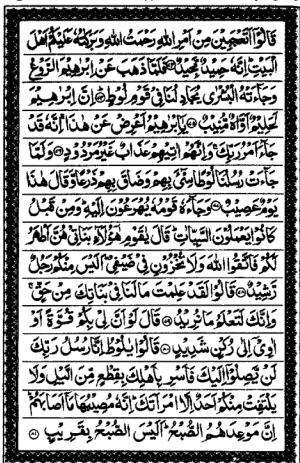 قَالُوْٓا اَتَعْجَبِيْنَ مِنْ اَمْرِ اللّٰهِ رَحْمَتُ اللّٰهِ وَبَرَكٰتُهٗ عَلَيْكُمْ اَهْلَ
الْبَيْتِ اِنَّهٗ حَمِيْدٌ مَّجِيْدٌ ۝ فَلَمَّا ذَهَبَ عَنْ اِبْرٰهِيْمَ الرَّوْعُ
وَجَآءَتْهُ الْبُشْرٰى يُجَادِلُنَا فِيْ قَوْمِ لُوْطٍ ۝ اِنَّ اِبْرٰهِيْمَ
لَحَلِيْمٌ اَوَّاهٌ مُّنِيْبٌ ۝ يٰٓاِبْرٰهِيْمُ اَعْرِضْ عَنْ هٰذَا اِنَّهٗ قَدْ
جَآءَ اَمْرُ رَبِّكَ وَاِنَّهُمْ اٰتِيْهِمْ عَذَابٌ غَيْرُ مَرْدُوْدٍ ۝ وَلَمَّا
جَآءَتْ رُسُلُنَا لُوْطًا سِيْٓءَ بِهِمْ وَضَاقَ بِهِمْ ذَرْعًا وَّقَالَ هٰذَا
يَوْمٌ عَصِيْبٌ ۝ وَجَآءَهٗ قَوْمُهٗ يُهْرَعُوْنَ اِلَيْهِ وَمِنْ قَبْلُ
كَانُوْا يَعْمَلُوْنَ السَّيِّاٰتِ قَالَ يٰقَوْمِ هٰٓؤُلَآءِ بَنَاتِيْ هُنَّ اَطْهَرُ
لَكُمْ فَاتَّقُوا اللّٰهَ وَلَا تُخْزُوْنِ فِيْ ضَيْفِيْ اَلَيْسَ مِنْكُمْ رَجُلٌ
رَّشِيْدٌ ۝ قَالُوْا لَقَدْ عَلِمْتَ مَا لَنَا فِيْ بَنٰتِكَ مِنْ حَقٍّ
وَاِنَّكَ لَتَعْلَمُ مَا نُرِيْدُ ۝ قَالَ لَوْ اَنَّ لِيْ بِكُمْ قُوَّةً اَوْ
اٰوِيْٓ اِلٰى رُكْنٍ شَدِيْدٍ ۝ قَالُوْا يٰلُوْطُ اِنَّا رُسُلُ رَبِّكَ
لَنْ يَّصِلُوْٓا اِلَيْكَ فَاَسْرِ بِاَهْلِكَ بِقِطْعٍ مِّنَ الَّيْلِ وَلَا
يَلْتَفِتْ مِنْكُمْ اَحَدٌ اِلَّا امْرَاَتَكَ اِنَّهٗ مُصِيْبُهَا مَآ اَصَابَهُمْ
اِنَّ مَوْعِدَهُمُ الصُّبْحُ اَلَيْسَ الصُّبْحُ بِقَرِيْبٍ ۝